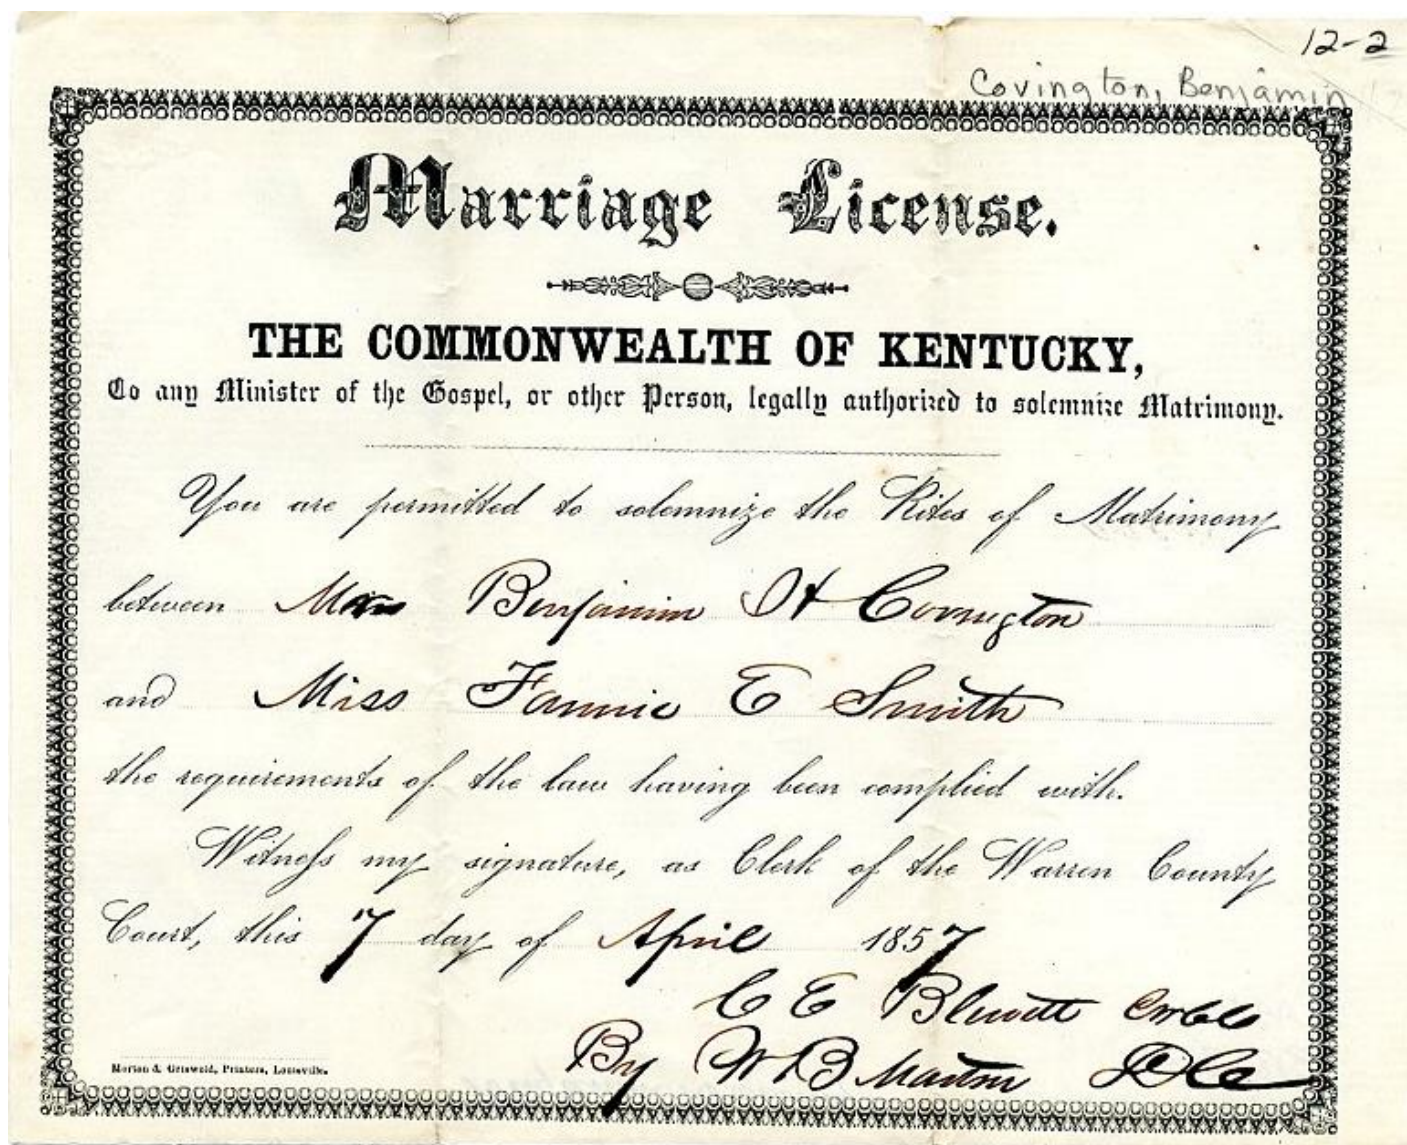 12-2
Covington, Benjamin
Marriage License.
THE COMMONWEALTH OF KENTUCKY,
To any Minister of the Gospel, or other Person, legally authorized to solemnize Matrimony.
You are permitted to solemnize the Rites of Matrimony
between Benjamin H Covington
and Miss Fannie E Smith
the requirements of the law having been complied with.
Witness my signature, as Clerk of the Warren County
Court, this 7 day of April 1857
C E Blewett
By W B Martin
Morton & Griswold, Printers, Louisville.